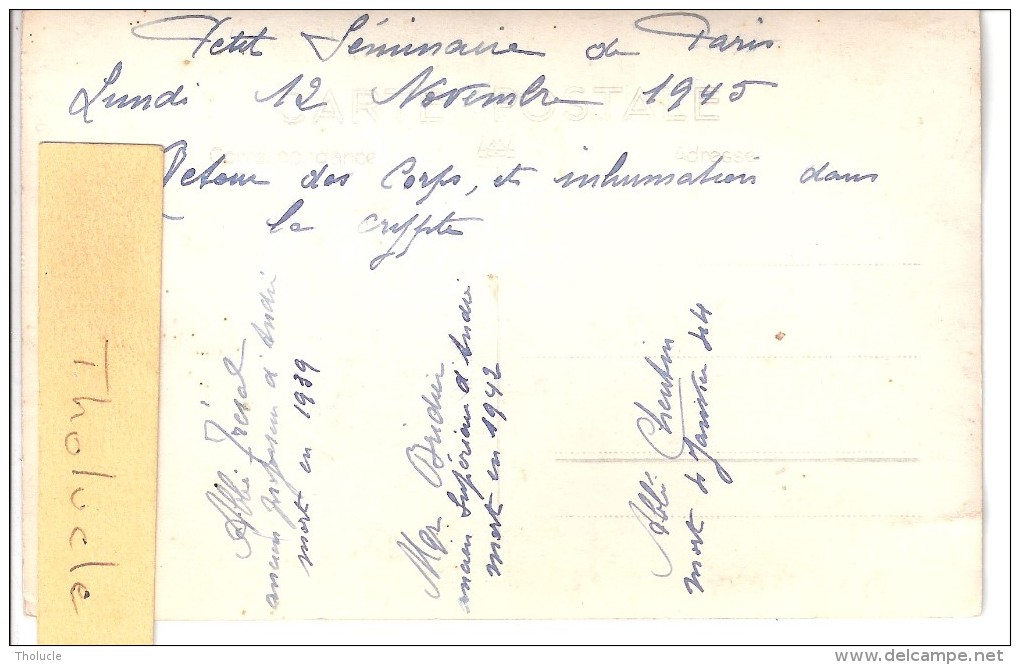 Petit Séminaire de Paris
Lundi 12 Novembre 1945
CARTE POSTALE
Correspondance Adresse
Retour des Corps, et inhumation dans
la crypte
Abbé
ancien Professeur d'André
mort en 1939
Mgr Bridier
ancien Supérieur d'André
mort en 1942
Abbé
mort de Janvier 44
Tholucle
Tholucle
delcampe.net